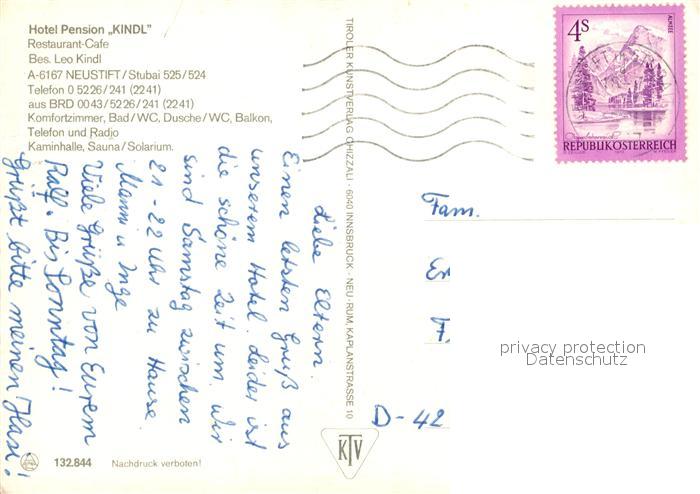 Hotel Pension „KINDL”
Restaurant-Cafe
Bes. Leo Kindl
A-6167 NEUSTIFT/Stubai 525/524
Telefon 0 52 26 / 241 (22 41)
aus BRD 00 43 / 52 26 / 241 (22 41)
Komfortzimmer, Bad/WC, Dusche/WC, Balkon,
Telefon und Radjo
Kaminhalle, Sauna/Solarium.
Liebe Eltern.
Einen letzten Gruß aus
unserem Hotel. Leider ist
die schöne Zeit um. Wir
sind Samstag zwischen
21 - 22 Uhr zu Hause.
Manni u Inge
Viele Grüße von Eurem
Ralf. Bis Sonntag!
Grüßt bitte meinen Hasi!
132.844
Nachdruck verboten!
TIROLER KUNSTVERLAG CHIZZALI · 6040 INNSBRUCK - NEU-RUM, KAPLANSTRASSE 10
KTV
4S
ALMSEE
REPUBLIK ÖSTERREICH
Fam.
D-42
privacy protection
Datenschutz